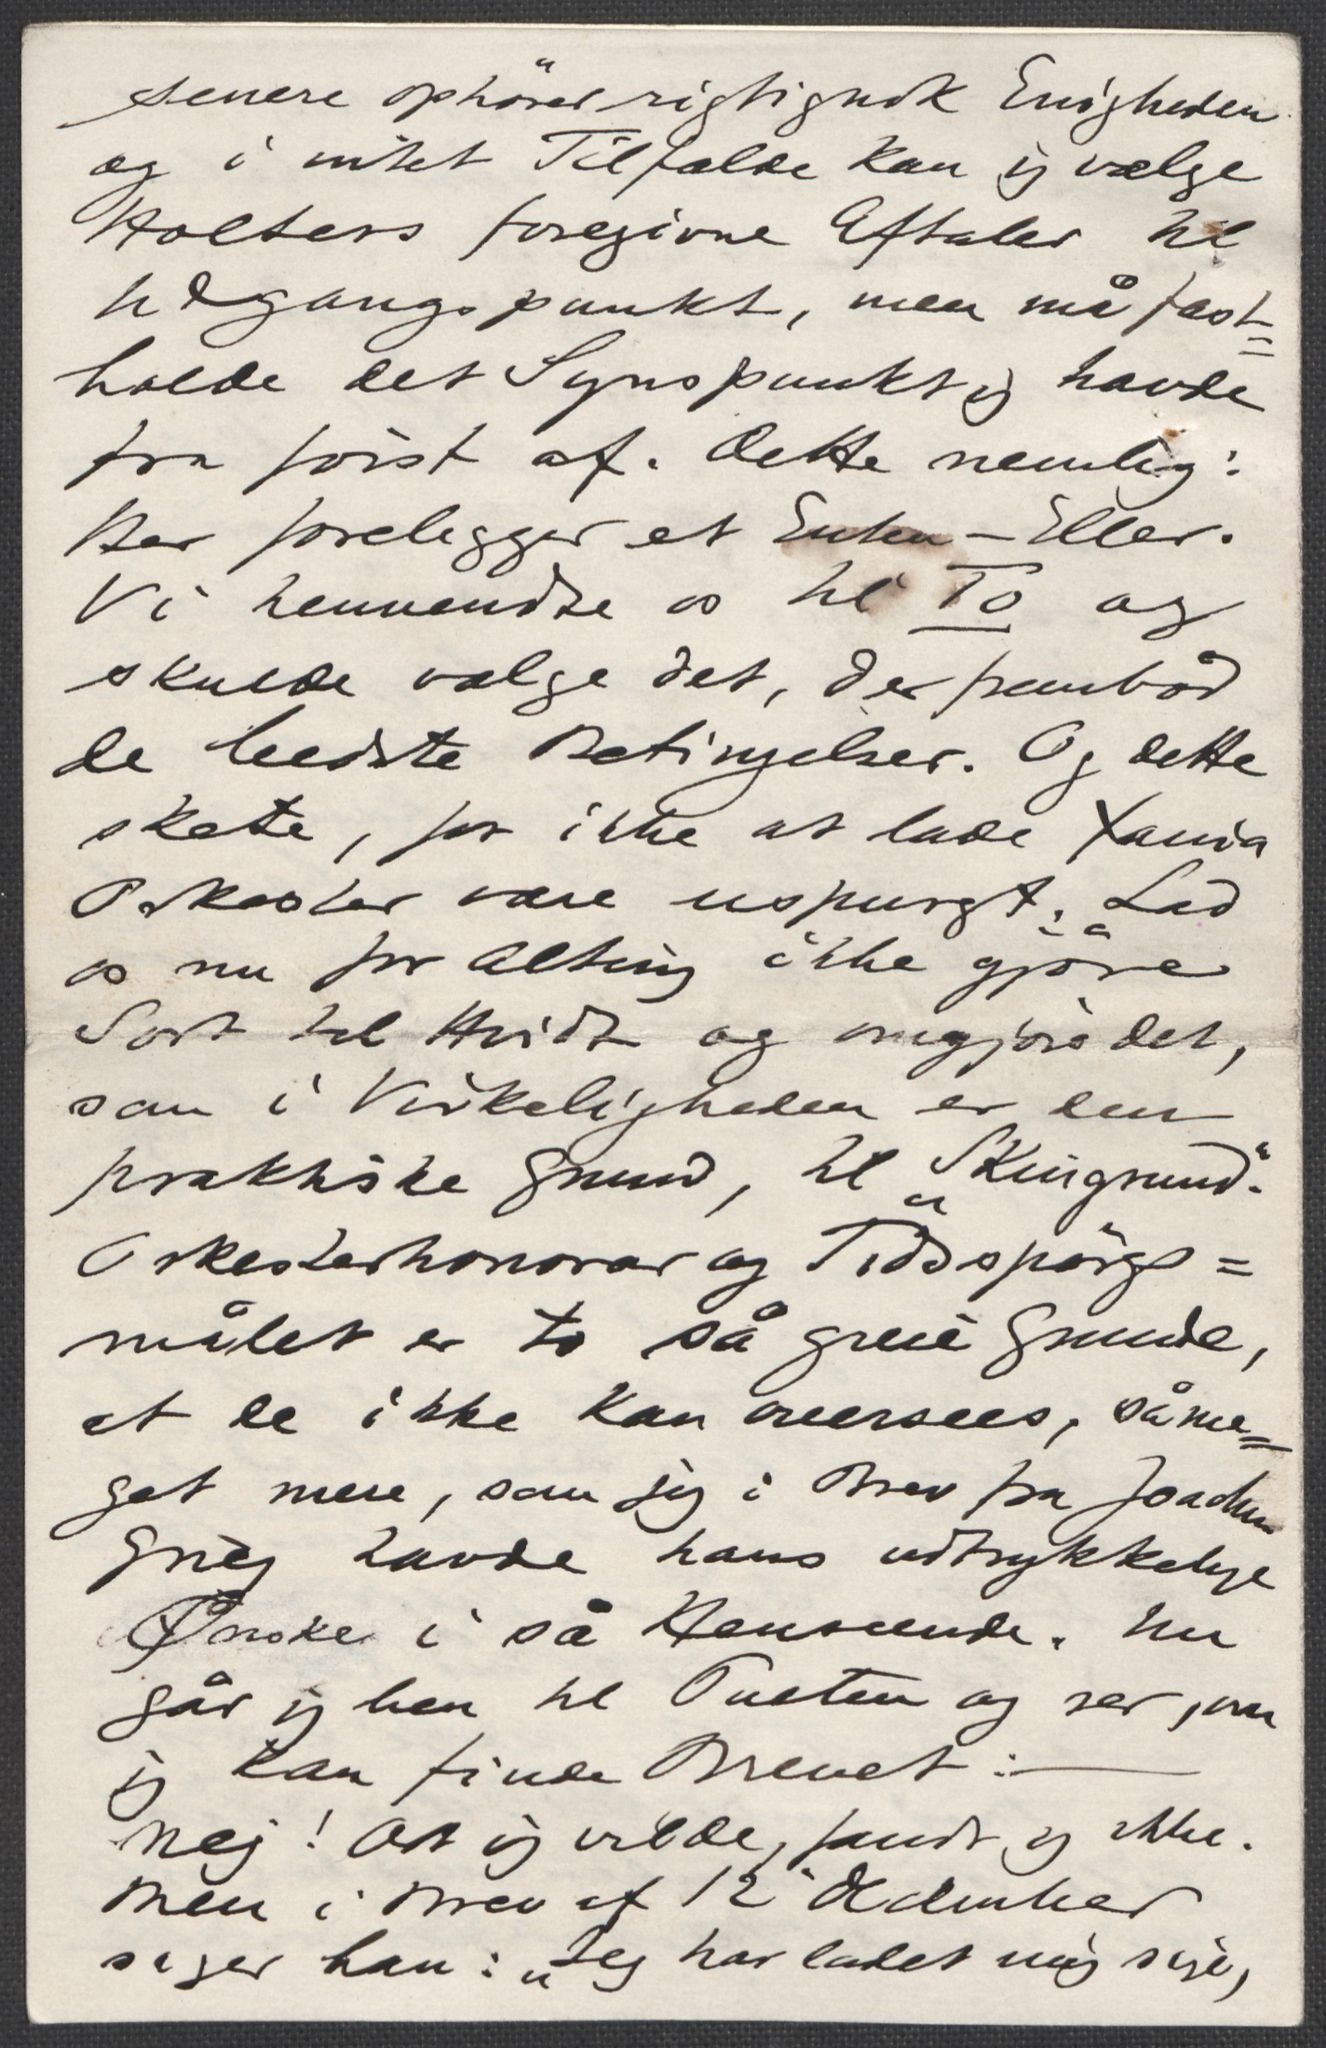 senere ophörer rigtignok Enigheden
og i intet Tilfælde kan jg vælge
Holters foregivne Aftaler til
Udgangspunkt, men må fast=
holde det Synspunkt jg havde
fra först af. Dette nemlig:
Her forelegger et Enten – Eller.
Vi henvendte os til To og
skulde vælge det, der frembød
de bedste Betingelser. Og dette
skete, for ikke at lade Xania
Orkester være uspurgt. Lad
os nu for Alting ikke gjöre
Sort til Hvidt og omgjöre det,
som i Virkeligheden er den
praktiske Grund, til „Skingrund".
Orkesterhonorar og Tidsspörgs=
målet er to så greie Grunde,
at de ikke kan oversees, såme=
get mere, som jeg i Brev fra Joachim
Grieg havde hans udtrykkelige
Ønske i så Henseende. Nu
går jg hen til Pulten og ser, om
jg kan finde Brevet: —
Nej! Det jg vilde, fandt jg ikke.
Men i Brev af 12 December
siger han: „Jeg har ladet mig sige,